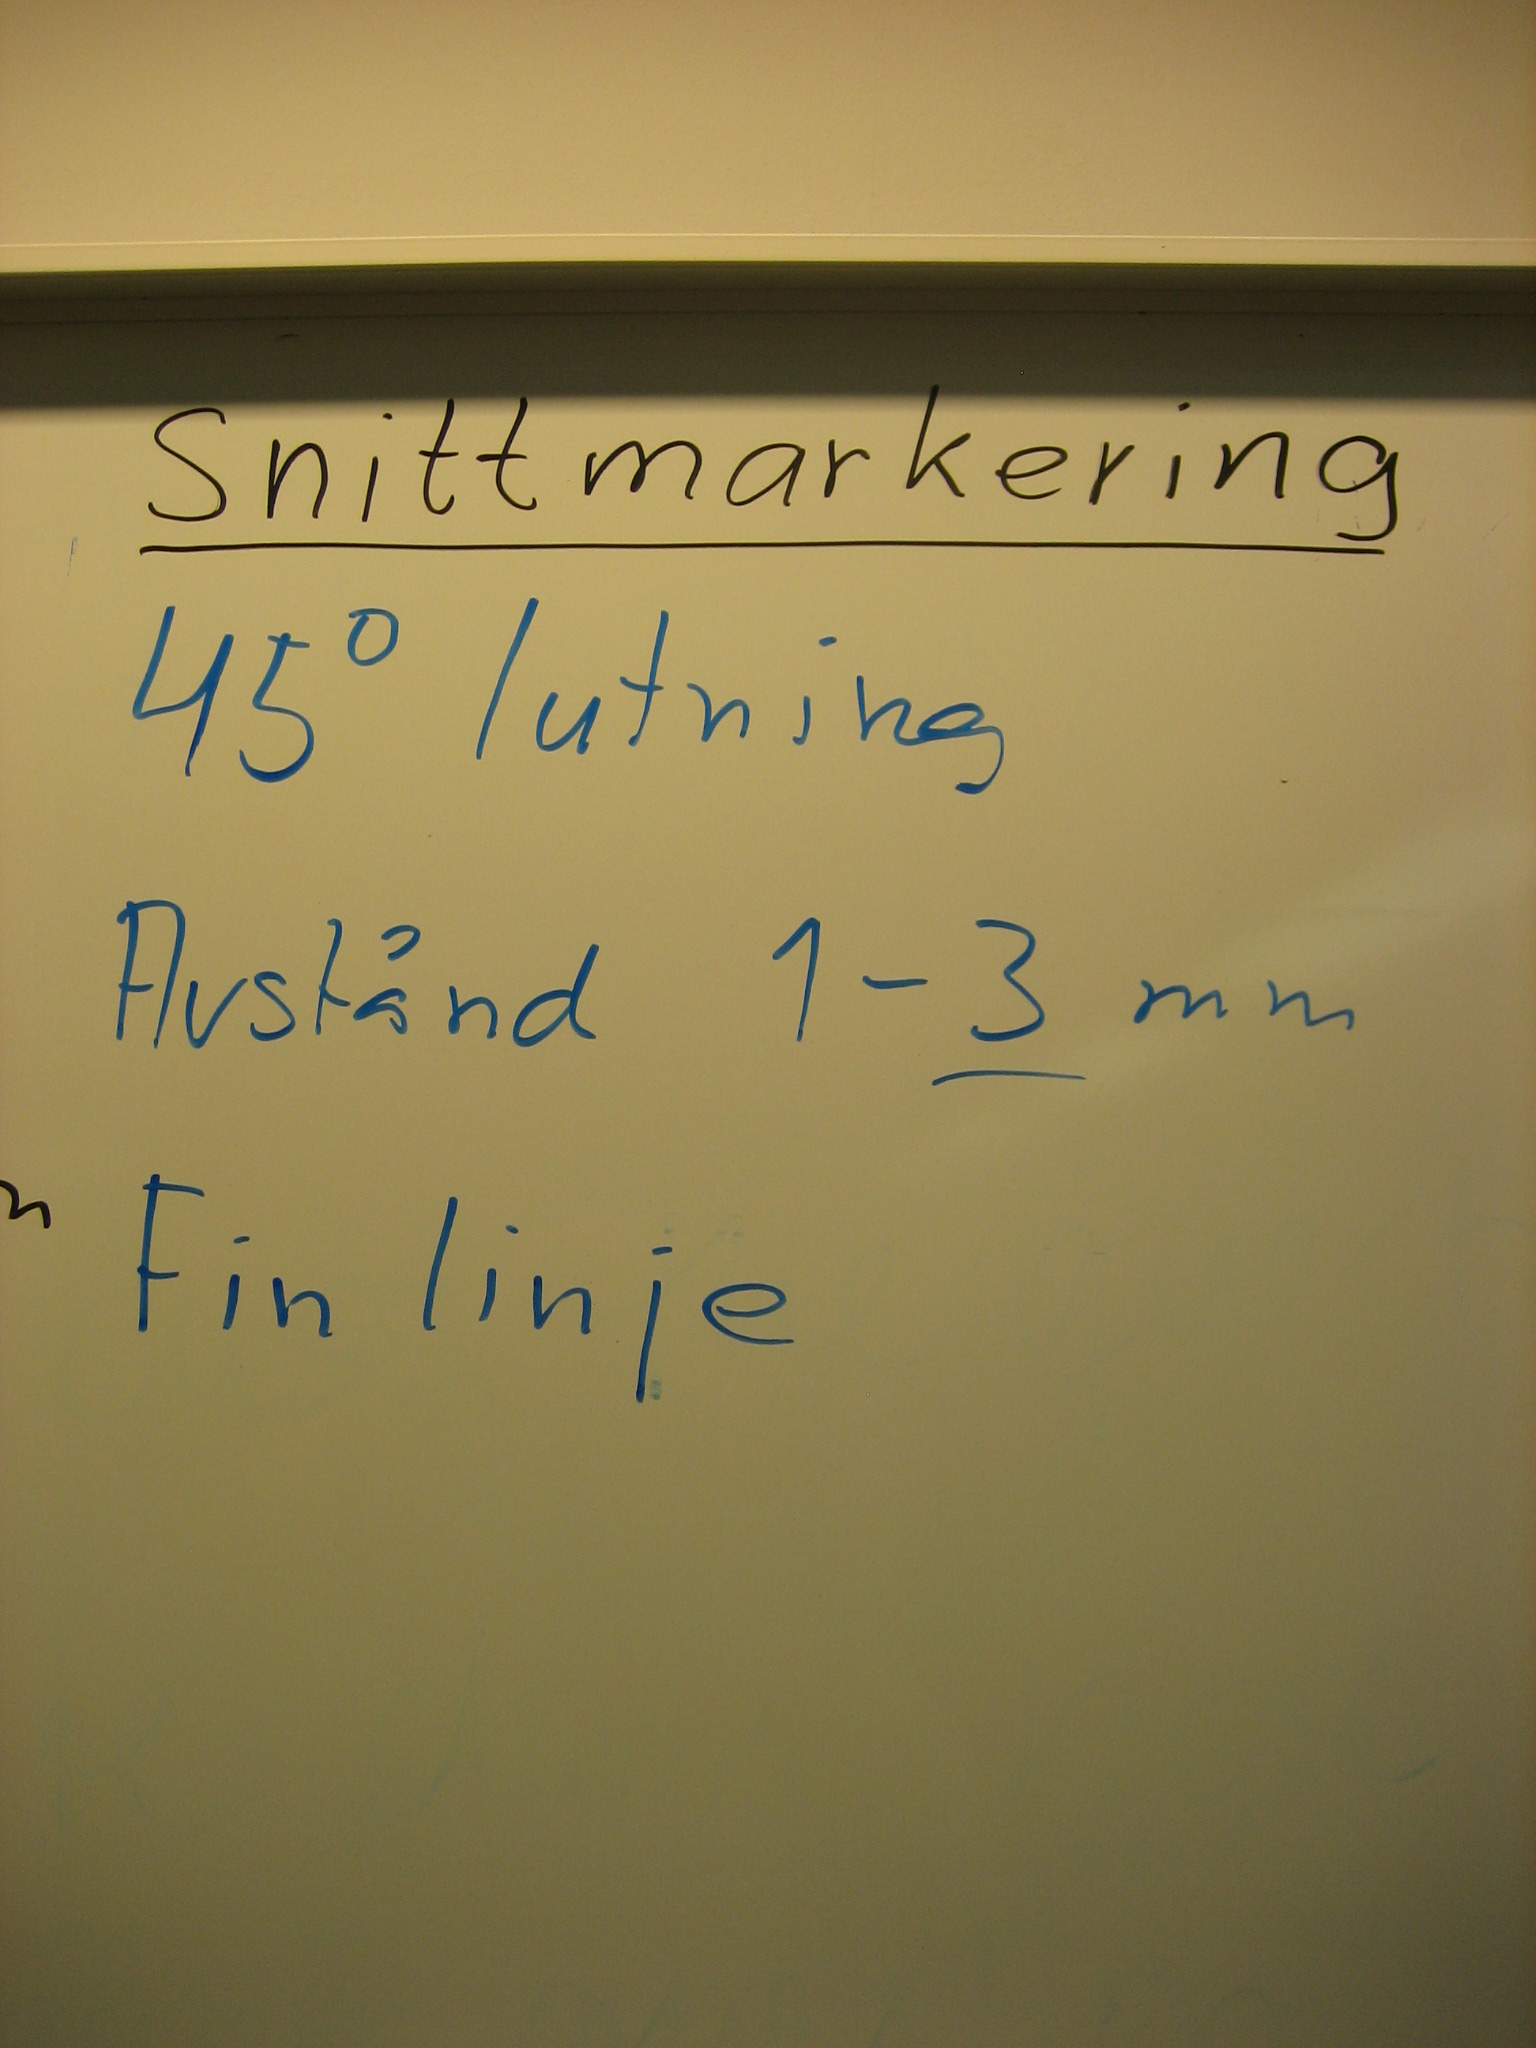 Snittmarkering
45° lutning
Avstånd 1-3 mm
Fin linje